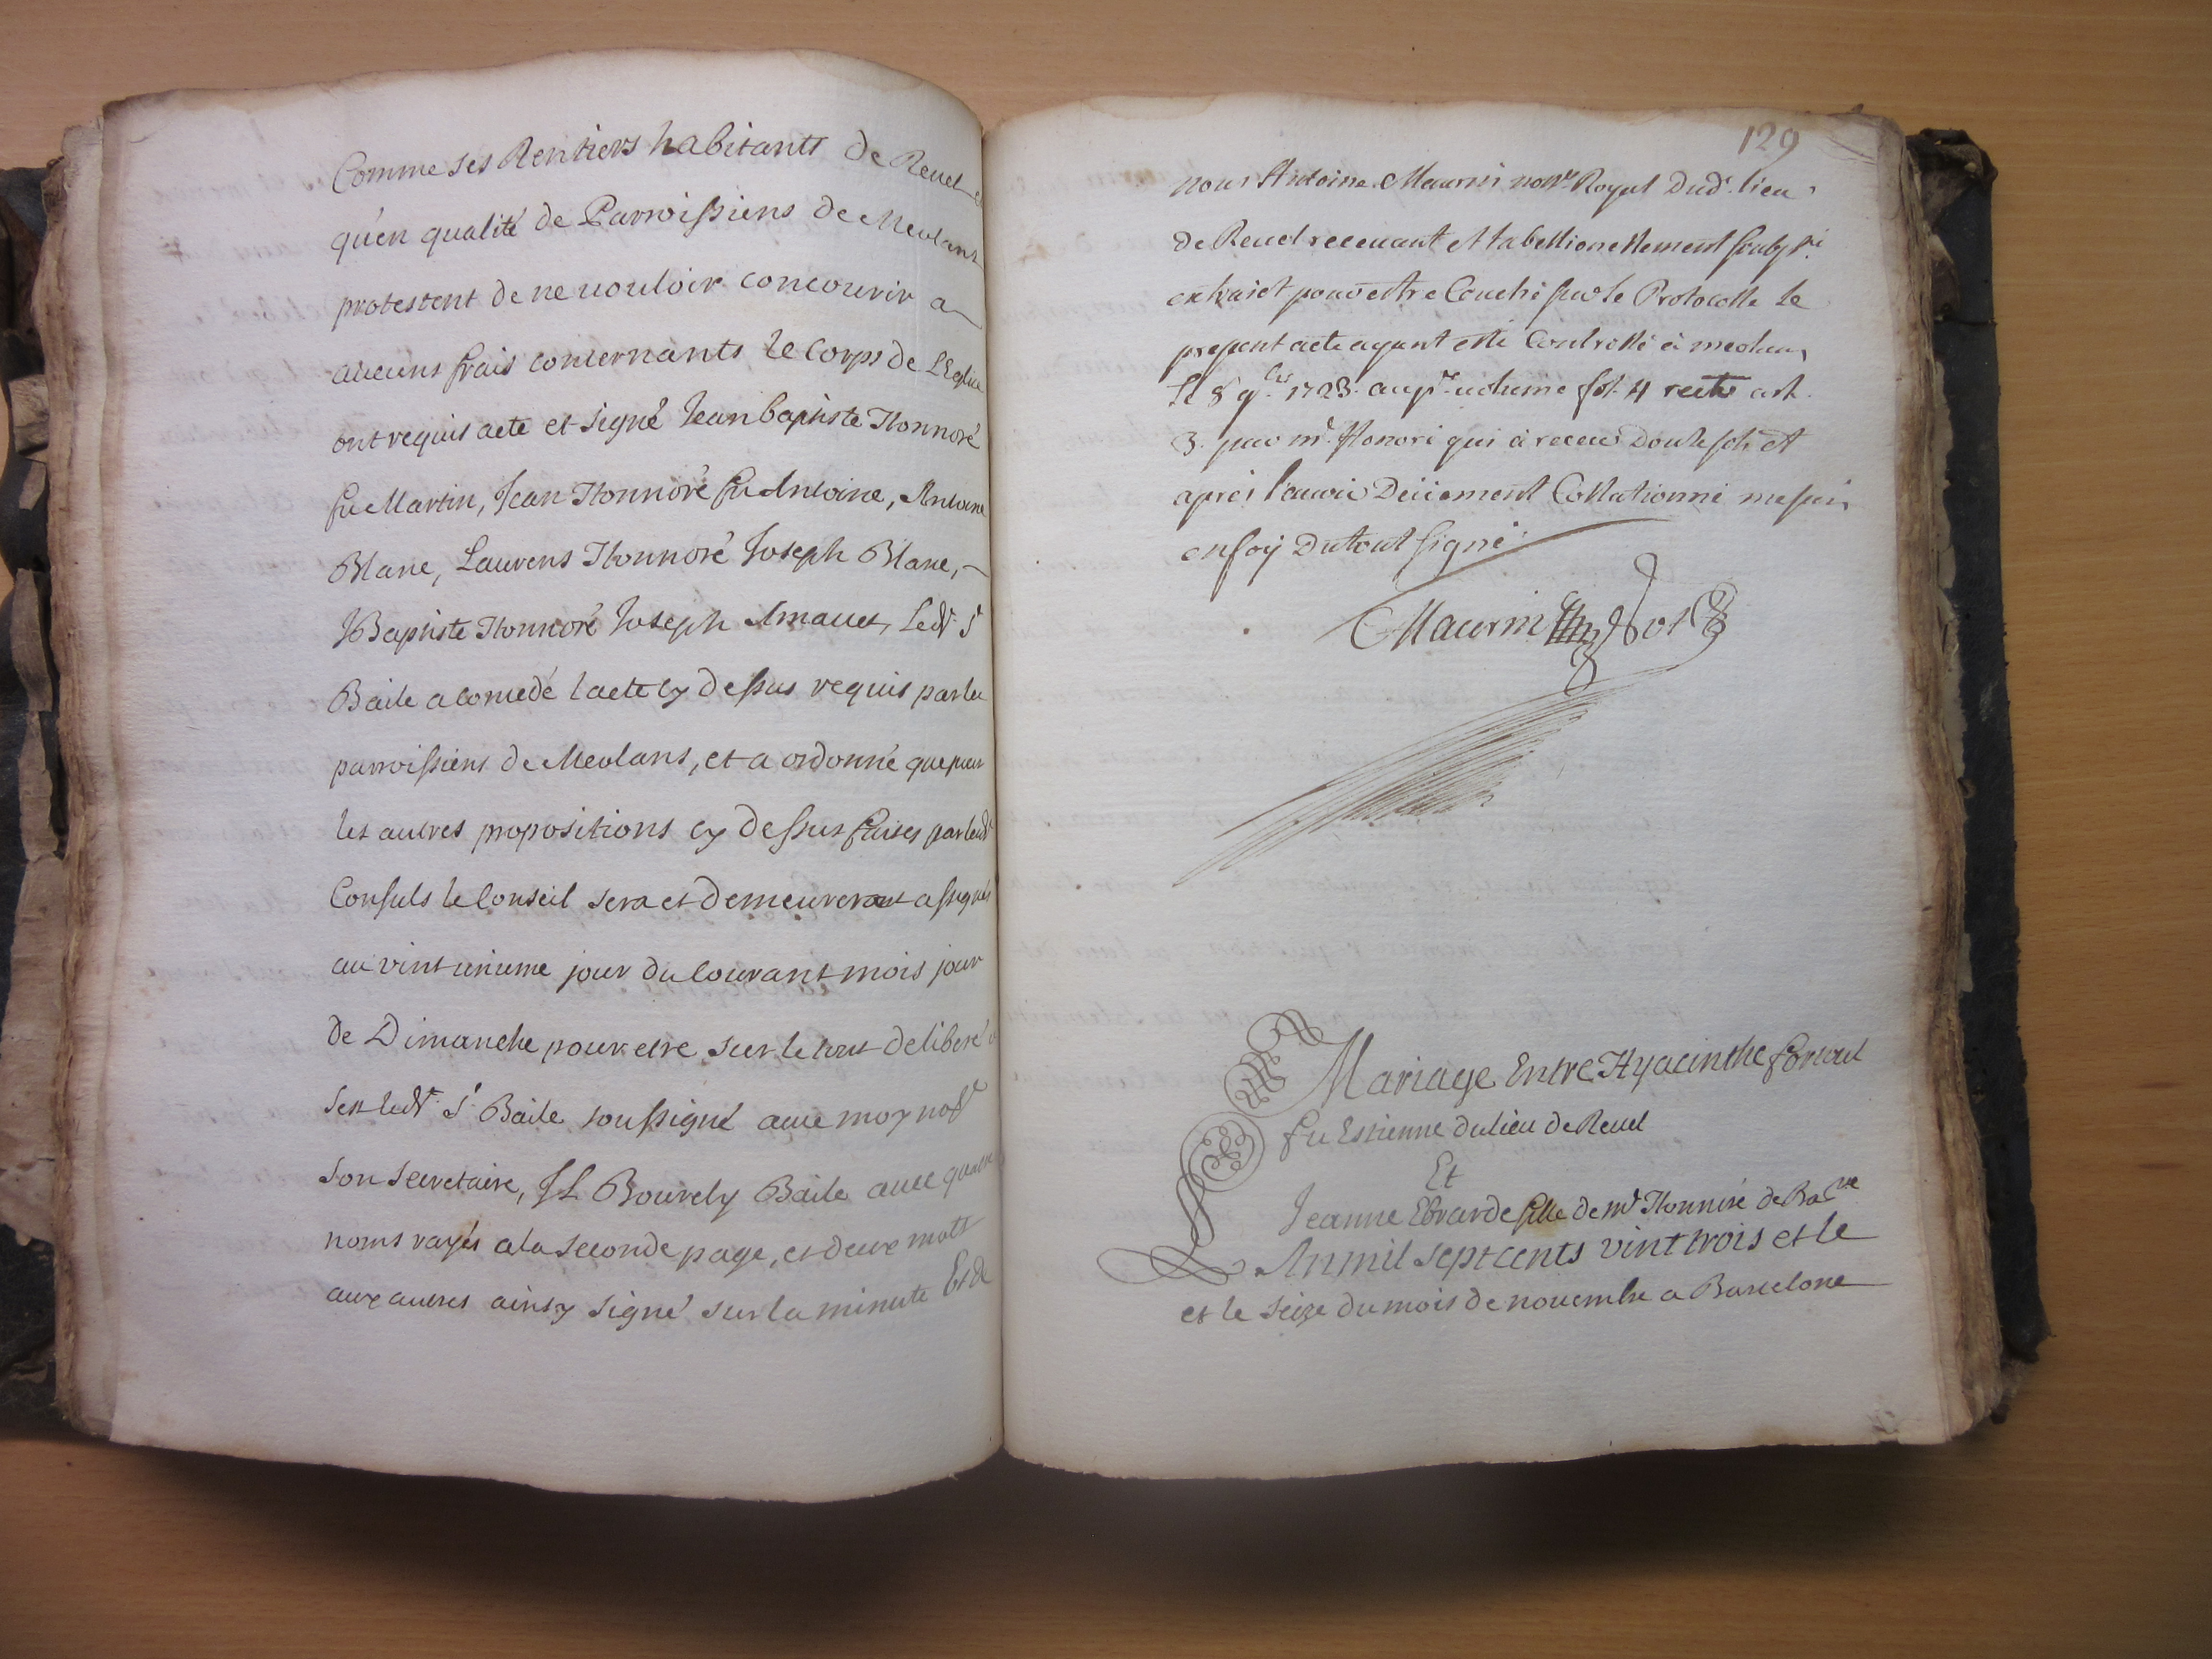 Comme ses Rentiers habitants de Revel
qu'en qualité de Parroissiens de Meolans
protestent de ne vouloir concourir a
aucuns frais concernants le Corps de L'Eglise
ont requis acte et signé Jean baptiste Honnoré
fu Martin, Jean Honnoré fu Antoine, Antoine
Blanc, Laurens Honnoré Joseph Blanc,
JBaptiste Honnoré Joseph Amauet, Ledt Sr
Baile a concedé l'acte cy dessus requis par les
parroissiens de Meolans, et a ordonné que pour
les autres propositions cy dessus faites par lesdt
Consuls le Conseil sera et demeurera assigné
au vint unieme jour du Courant mois jour
de Dimanche pour etre sur le tout deliberé
s'est ledt Sr Baile soussigné avec moy nore
son secretaire, JL Bourely Baile avec quatre
noms rayés a la seconde page, et deux mots
aux autres ainsy signé sur la minute Et de
129
nous Antoine Maurin nore Royal Dudt lieu
de Revel recevant et tabellionellement soubzné
extraict pour estre Couché sur le Protocolle le
present acte ayant esté Controllé à meolans
le 8 9bre 1723. au pr volume fol. 4 recto art.
3. par mr Honoré qui à receu Douze sols et
apres l'avoir Deüement Collationné me suis
en foy Du tout signé
Maurin Not
Mariage Entre Hyacinthe fortoul
fu Estienne du lieu de Revel
Et
Jeanne Ebrarde fille de mr Honnoré de Barne
An mil sept cents vint trois et le
et le seize du mois de novembre a Barcelone